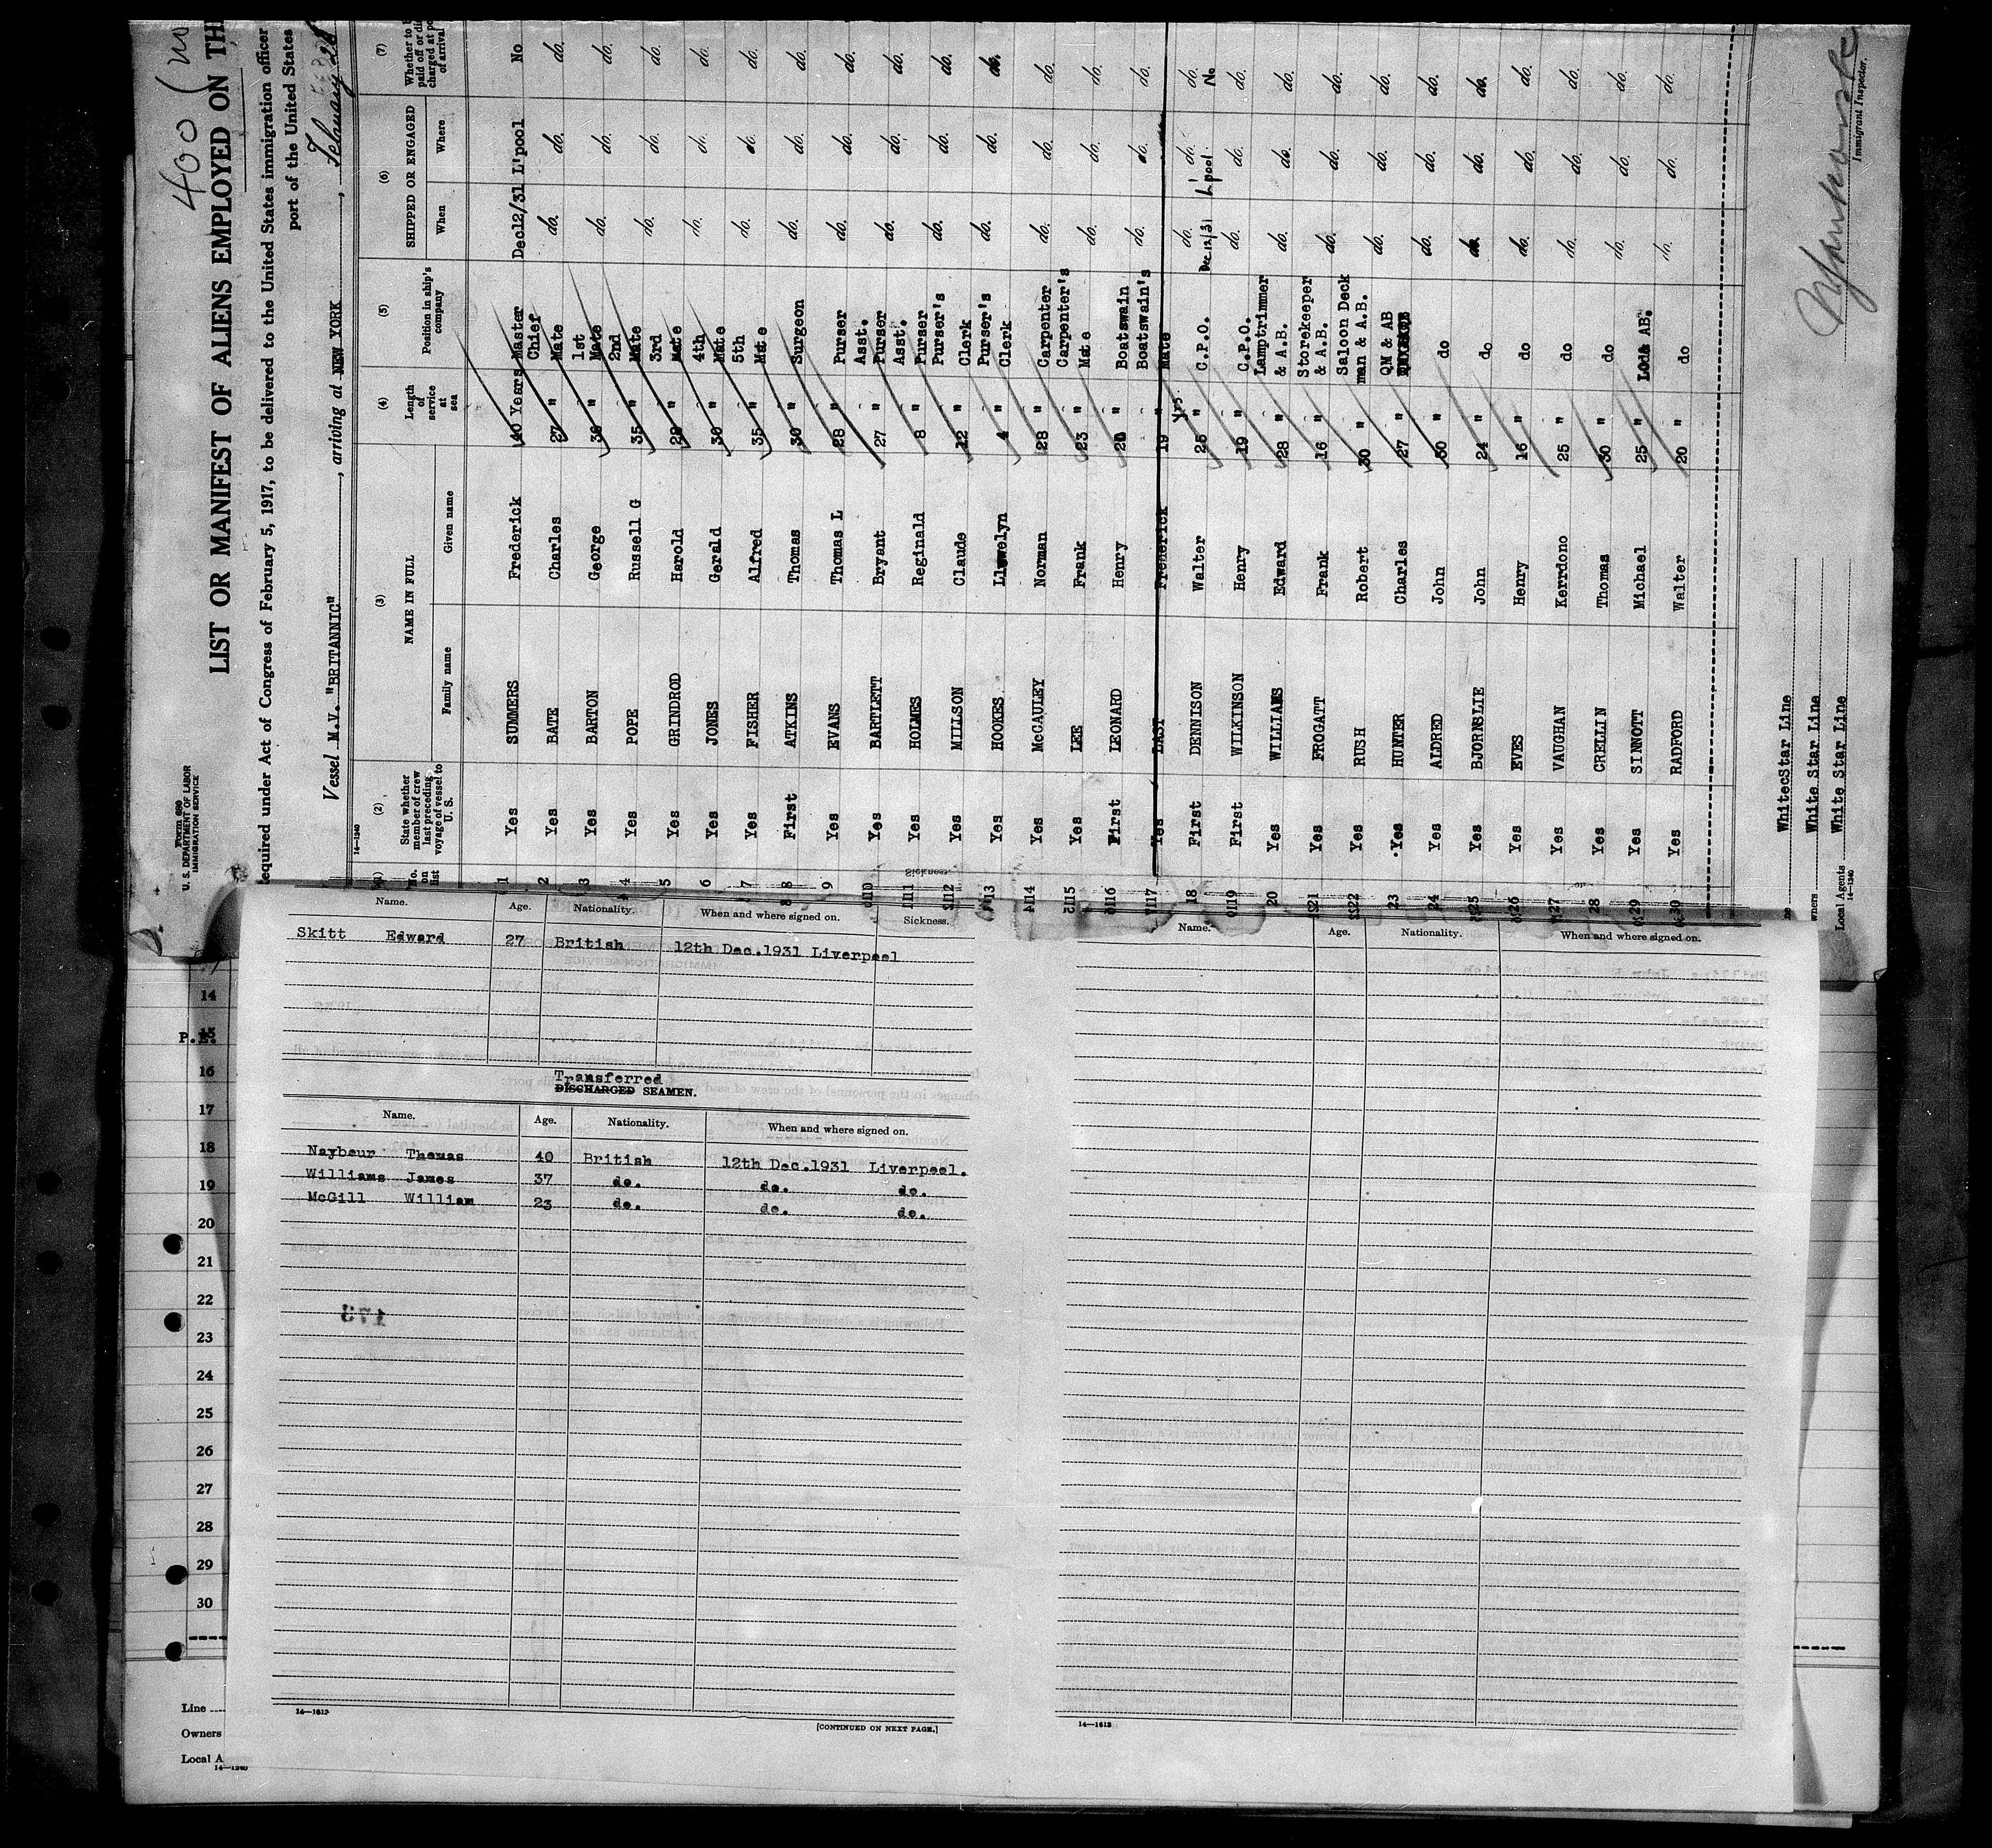 400
Form 680
U. S. DEPARTMENT OF LABOR
IMMIGRATION SERVICE
LIST OR MANIFEST OF ALIENS EMPLOYED ON TH
equired under Act of Congress of February 5, 1917, to be delivered to the United States immigration officer
port of the United States
Vessel M.V. "BRITANNIC", arriving at NEW YORK,
14-1240
(1) (2) (3) (4) (5) (6) (7)
No. on list State whether member of crew last preceding voyage of vessel to U. S. NAME IN FULL Family name Given name Length of service at sea Position in ship's company SHIPPED OR ENGAGED When Where Whether to paid off or charged at of arrival
1 Yes SUMMERS Frederick 40 Years Master Dec12/31 L'pool No
2 Yes BATE Charles 27 " Chief Mate do. do. do.
3 Yes BARTON George 36 " 1st Mate do. do. do.
4 Yes POPE Russell G 35 " 2nd Mate do. do. do.
5 Yes GRINDROD Harold 28 " 3rd Mate do. do. do.
6 Yes JONES Gerald 30 " 4th Mate do. do. do.
7 Yes FISHER Alfred 35 " 5th Mate do. do. do.
8 First ATKINS Thomas 30 " Surgeon do. do. do.
9 Yes EVANS Thomas L 28 " Purser do. do. do.
10 Yes BARTLETT Bryant 27 " Asst. Purser do. do. do.
11 Yes HOLMES Reginald 8 " Asst. Purser do. do. do.
12 Yes MILLSON Claude 12 " Purser's Clerk do. do. do.
13 Yes HOOKES Llewelyn 4 " Purser's Clerk do. do. do.
14 Yes McCAULEY Norman 28 " Carpenter do. do. do.
15 Yes LEE Frank 23 " Carpenter's Mate do. do. do.
16 First LEONARD Henry 20 " Boatswain do. do. do.
17 Yes LAST Frederick 19 " Boatswain's Mate do. do. do.
18 First DENNISON Walter 25 Yrs " C.P.O. Dec.12/31 L'pool No
19 First WILKINSON Henry 19 " C.P.O. do. do. do.
20 Yes WILLIAMS Edward 28 " Lamptrimmer & A.B. do. do. do.
21 Yes FROGATT Frank 16 " Storekeeper & A.B. do. do. do.
22 Yes RUSH Robert 30 " Saloon Deck man & A.B. do. do. do.
23 Yes HUNTER Charles 27 " QM & AB do. do. do.
24 Yes ALDRED John 30 " do do. do. do.
25 Yes BJORNSLIE John 24 " do do. do. do.
26 Yes EVES Henry 16 " do do. do. do.
27 Yes VAUGHAN Kerrdono 25 " do do. do. do.
28 Yes CRELLIN Thomas 30 " do do. do. do.
29 Yes SINNOTT Michael 25 " AB. do. do. do.
30 Yes RADFORD Walter 20 " do do. do. do.
WhitecStar Line
wners White Star Line
Local Agents White Star Line
14-1240
Immigrant Inspector.
Name. Age. Nationality. When and where signed on. Sickness.
Skitt Edward 27 British 12th Dec.1931 Liverpool
Transferred
DISCHARGED SEAMEN.
Name. Age. Nationality. When and where signed on.
Naybour Thomas 40 British 12th Dec.1931 Liverpool.
Williams James 37 do. do. do.
McGill William 23 do. do. do.
173
14—1613
[CONTINUED ON NEXT PAGE.]
Name. Age. Nationality. When and where signed on.
14—1613
14
P.E. 15
16
17
18
19
20
21
22
23
24
25
26
27
28
29
30
Line
Owners
Local A
14—1240